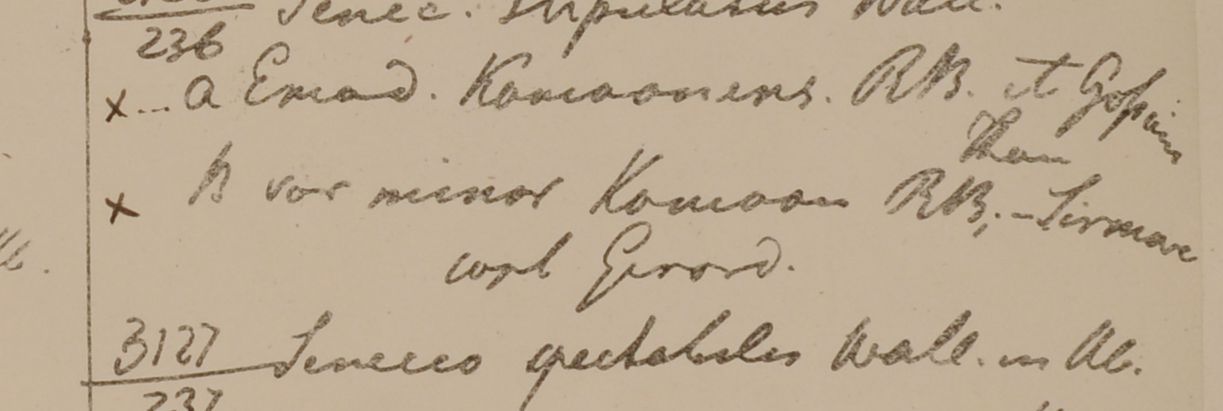 Senec. stipulatus Wall.
236
x ... a Emod. Kamaonens. RB. et Gossain
Than
x B var minor Kamaon RB; – Sirmore
coll Gerard.
3127 Senecio spectabilis Wall. in Hb.
237